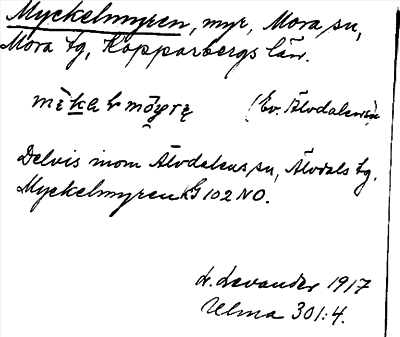 Myckelmyren, myr, Mora sn,
Mora tg, Kopparbergs län.
(Ev. Älvdalen)
Delvis inom Älvdalens sn, Älvdals tg.
Myckelmyren G 102 NO.
L. Levander 1917
Ulma 301:4.